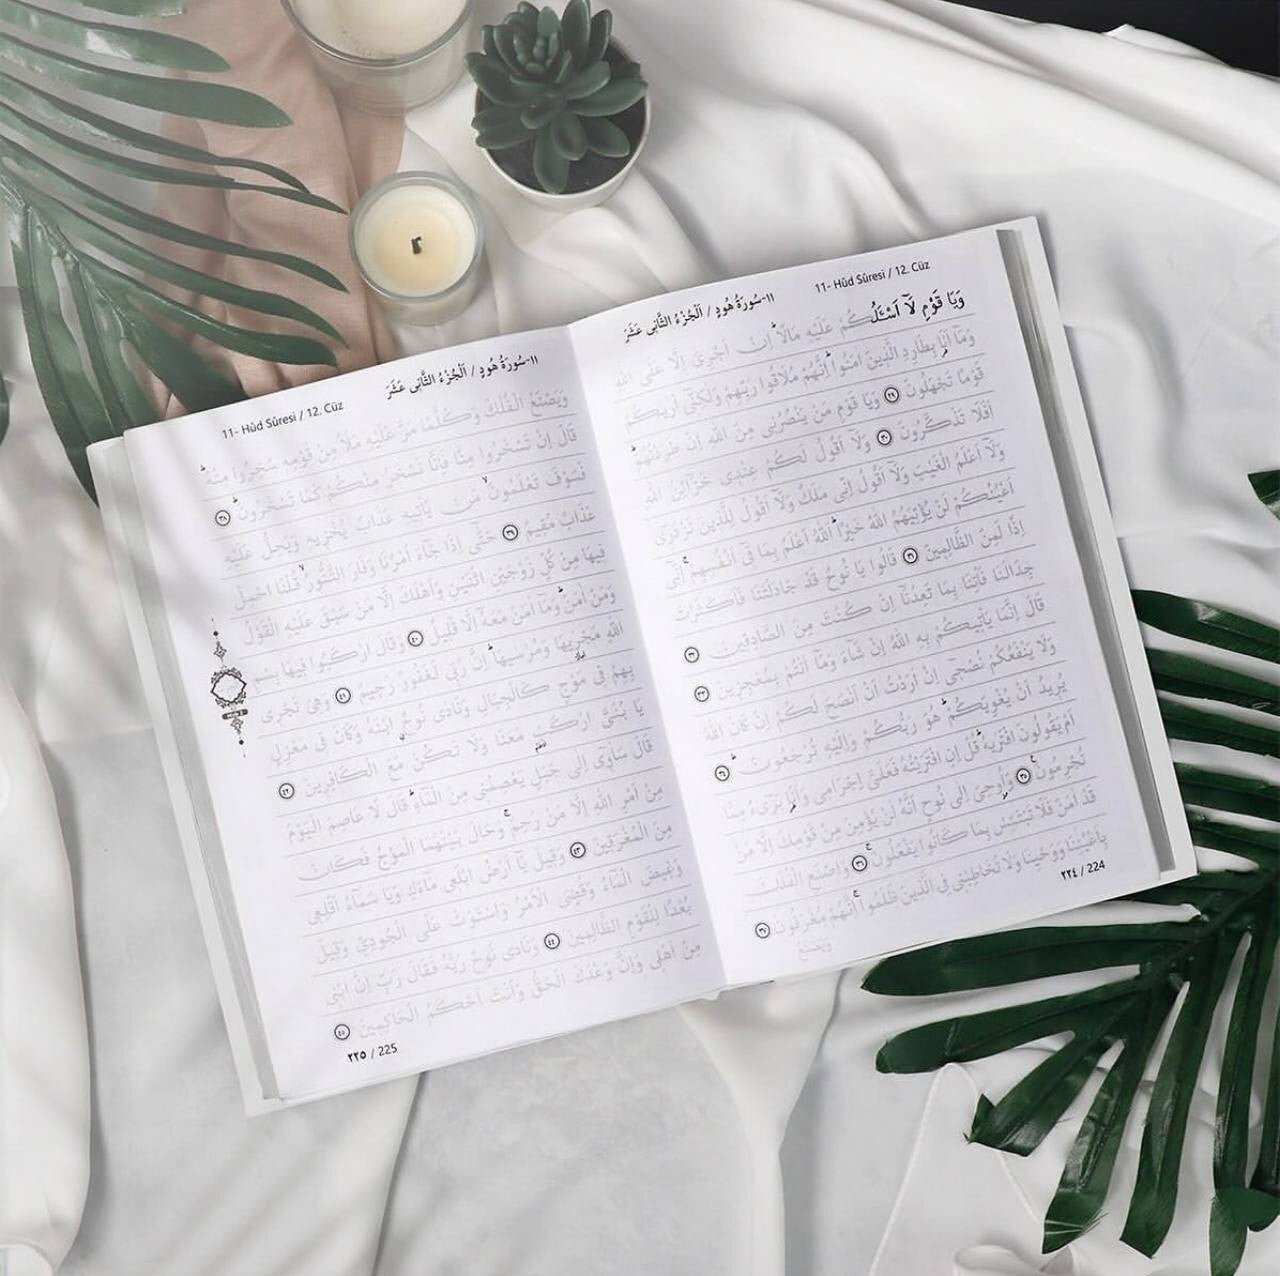 ١١-سُورَةُ هُودٍ / اَلْجُزْءُ الثَّانِى عَشَرَ
11- Hûd Sûresi / 12. Cüz
وَيَا قَوْمِ لَآ اَسْـَٔلُكُمْ عَلَيْهِ مَالًاۜ اِنْ اَجْرِىَ اِلَّا عَلَى اللّٰهِ
وَمَآ اَنَا۬ بِطَارِدِ الَّذِينَ اٰمَنُواۜ اِنَّهُمْ مُلَاقُوا رَبِّهِمْ وَلٰكِنّٖٓى اَرٰيكُمْ
قَوْمًا تَجْهَلُونَ ٢٩ وَيَا قَوْمِ مَنْ يَنْصُرُنِى مِنَ اللّٰهِ اِنْ طَرَدْتُهُمْۜ
اَفَلَا تَذَكَّرُونَ ٣٠ وَلَآ اَقُولُ لَكُمْ عِنْدِى خَزَٓائِنُ اللّٰهِ
وَلَآ اَعْلَمُ الْغَيْبَ وَلَآ اَقُولُ اِنِّى مَلَكٌ وَلَآ اَقُولُ لِلَّذِينَ تَزْدَرٖٓى
اَعْيُنُكُمْ لَنْ يُؤْتِيَهُمُ اللّٰهُ خَيْرًاۜ اَللّٰهُ اَعْلَمُ بِمَا فٖٓى اَنْفُسِهِمْۚ اِنّٖٓى
اِذًا لَمِنَ الظَّالِمِينَ ٣١ قَالُوا يَا نُوحُ قَدْ جَادَلْتَنَا فَاَكْثَرْتَ
جِدَالَنَا فَأْتِنَا بِمَا تَعِدُنَآ اِنْ كُنْتَ مِنَ الصَّادِقِينَ ٣٢
قَالَ اِنَّمَا يَأْتِيكُمْ بِهِ اللّٰهُ اِنْ شَٓاءَ وَمَآ اَنْتُمْ بِمُعْجِزِينَ ٣٣
وَلَا يَنْفَعُكُمْ نُصْحٖٓى اِنْ اَرَدْتُ اَنْ اَنْصَحَ لَكُمْ اِنْ كَانَ اللّٰهُ
يُرِيدُ اَنْ يُغْوِيَكُمْۜ هُوَ رَبُّكُمْ وَاِلَيْهِ تُرْجَعُونَۜ ٣٤
اَمْ يَقُولُونَ افْتَرٰيهُۜ قُلْ اِنِ افْتَرَيْتُهُ فَعَلَىَّ اِجْرَامِى وَاَنَا۬ بَرِىءٌ مِمَّا
تُجْرِمُونَۚ ٣٥ وَاُو۫حِىَ اِلٰى نُوحٍ اَنَّهُ لَنْ يُؤْمِنَ مِنْ قَوْمِكَ اِلَّا مَنْ
قَدْ اٰمَنَ فَلَا تَبْتَئِسْ بِمَا كَانُوا يَفْعَلُونَۚ ٣٦ وَاصْنَعِ الْفُلْكَ
بِاَعْيُنِنَا وَوَحْيِنَا وَلَا تُخَاطِبْنِى فِى الَّذِينَ ظَلَمُواۚ اِنَّهُمْ مُغْرَقُونَ ٣٧
وَيَصْنَعُ
٢٢٤ / 224
١١-سُورَةُ هُودٍ / اَلْجُزْءُ الثَّانِى عَشَرَ
11- Hûd Sûresi / 12. Cüz
وَيَصْنَعُ الْفُلْكَ وَكُلَّمَا مَرَّ عَلَيْهِ مَلَأٌ مِنْ قَوْمِهِ سَخِرُوا مِنْهُۜ
قَالَ اِنْ تَسْخَرُوا مِنَّا فَاِنَّا نَسْخَرُ مِنْكُمْ كَمَا تَسْخَرُونَۜ ٣٨
فَسَوْفَ تَعْلَمُونَۙ مَنْ يَأْتِيهِ عَذَابٌ يُخْزِيهِ وَيَحِلُّ عَلَيْهِ
عَذَابٌ مُقِيمٌ ٣٩ حَتّٰٓى اِذَا جَٓاءَ اَمْرُنَا وَفَارَ التَّنُّورُۙ قُلْنَا احْمِلْ
فِيهَا مِنْ كُلٍّ زَوْجَيْنِ اثْنَيْنِ وَاَهْلَكَ اِلَّا مَنْ سَبَقَ عَلَيْهِ الْقَوْلُ
وَمَنْ اٰمَنَۜ وَمَآ اٰمَنَ مَعَهُٓ اِلَّا قَلِيلٌ ٤٠ وَقَالَ ارْكَبُوا فِيهَا بِسْمِ
اللّٰهِ مَجْرٰۭيهَا وَمُرْسٰيهَاۜ اِنَّ رَبِّى لَغَفُورٌ رَحِيمٌ ٤١ وَهِىَ تَجْرِى
بِهِمْ فِى مَوْجٍ كَالْجِبَالِ وَنَادٰى نُوحٌۨ ابْنَهُ وَكَانَ فِى مَعْزِلٍ
يَا بُنَىَّ ارْكَبْ مَعَنَا وَلَا تَكُنْ مَعَ الْكَافِرِينَ ٤٢
قَالَ سَاٰوٖٓى اِلٰى جَبَلٍ يَعْصِمُنِى مِنَ الْمَٓاءِۜ قَالَ لَا عَاصِمَ الْيَوْمَ
مِنْ اَمْرِ اللّٰهِ اِلَّا مَنْ رَحِمَۚ وَحَالَ بَيْنَهُمَا الْمَوْجُ فَكَانَ
مِنَ الْمُغْرَقِينَ ٤٣ وَقِيلَ يَآ اَرْضُ ابْلَعِى مَٓاءَكِ وَيَا سَمَٓاءُ اَقْلِعِى
وَغِيضَ الْمَٓاءُ وَقُضِىَ الْاَمْرُ وَاسْتَوَتْ عَلَى الْجُودِىِّ وَقِيلَ
بُعْدًا لِلْقَوْمِ الظَّالِمِينَ ٤٤ وَنَادٰى نُوحٌ رَبَّهُ فَقَالَ رَبِّ اِنَّ ابْنِى
مِنْ اَهْلِى وَاِنَّ وَعْدَكَ الْحَقُّ وَاَنْتَ اَحْكَمُ الْحَاكِمِينَ ٤٥
٢٢٥ / 225